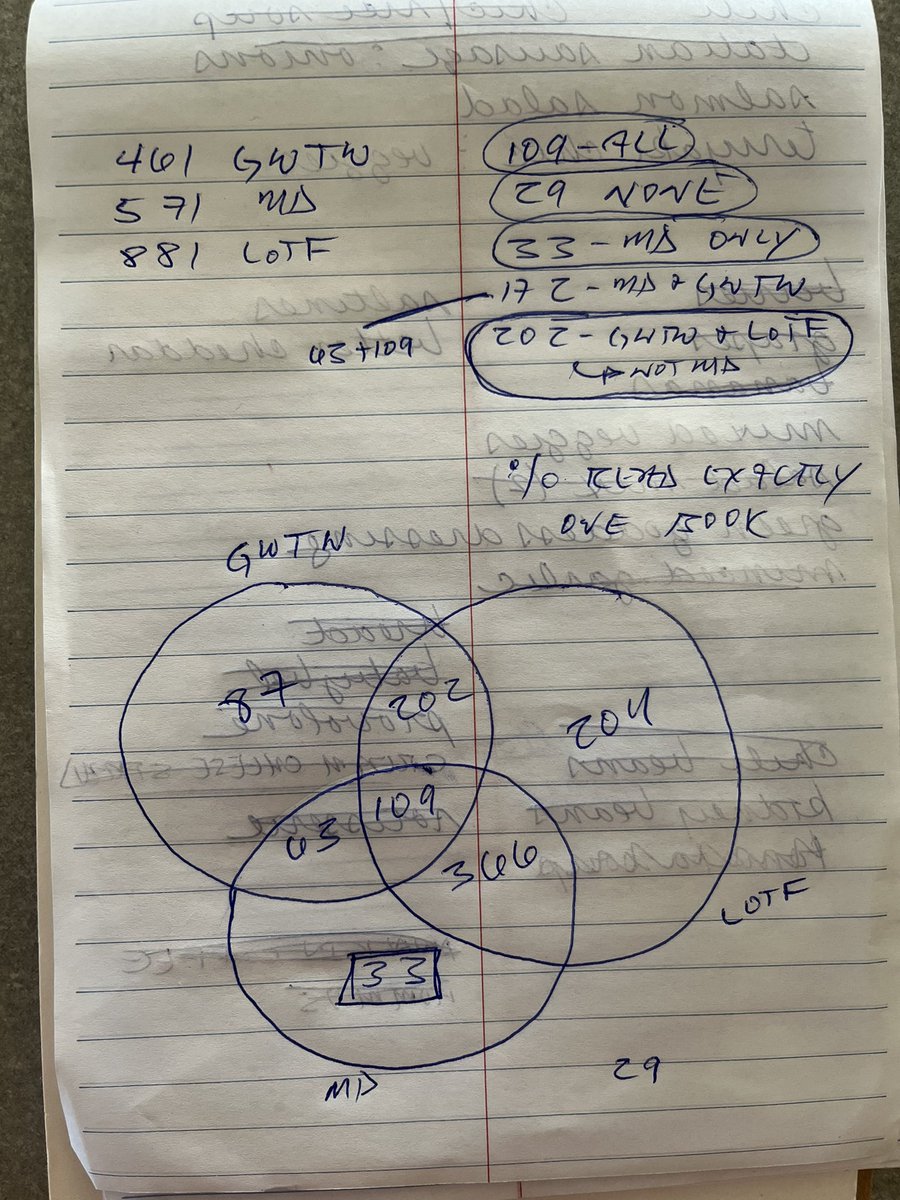 461 GWTW
571 MD
881 LOTF
109 - ALL
29 NONE
33 - MD ONLY
172 - MD & GWTW
63+109
202 - GWTW & LOTF
NOT MD
% READ EXACTLY
ONE BOOK
GWTW
87
202
204
109
63
366
LOTF
33
MD
29